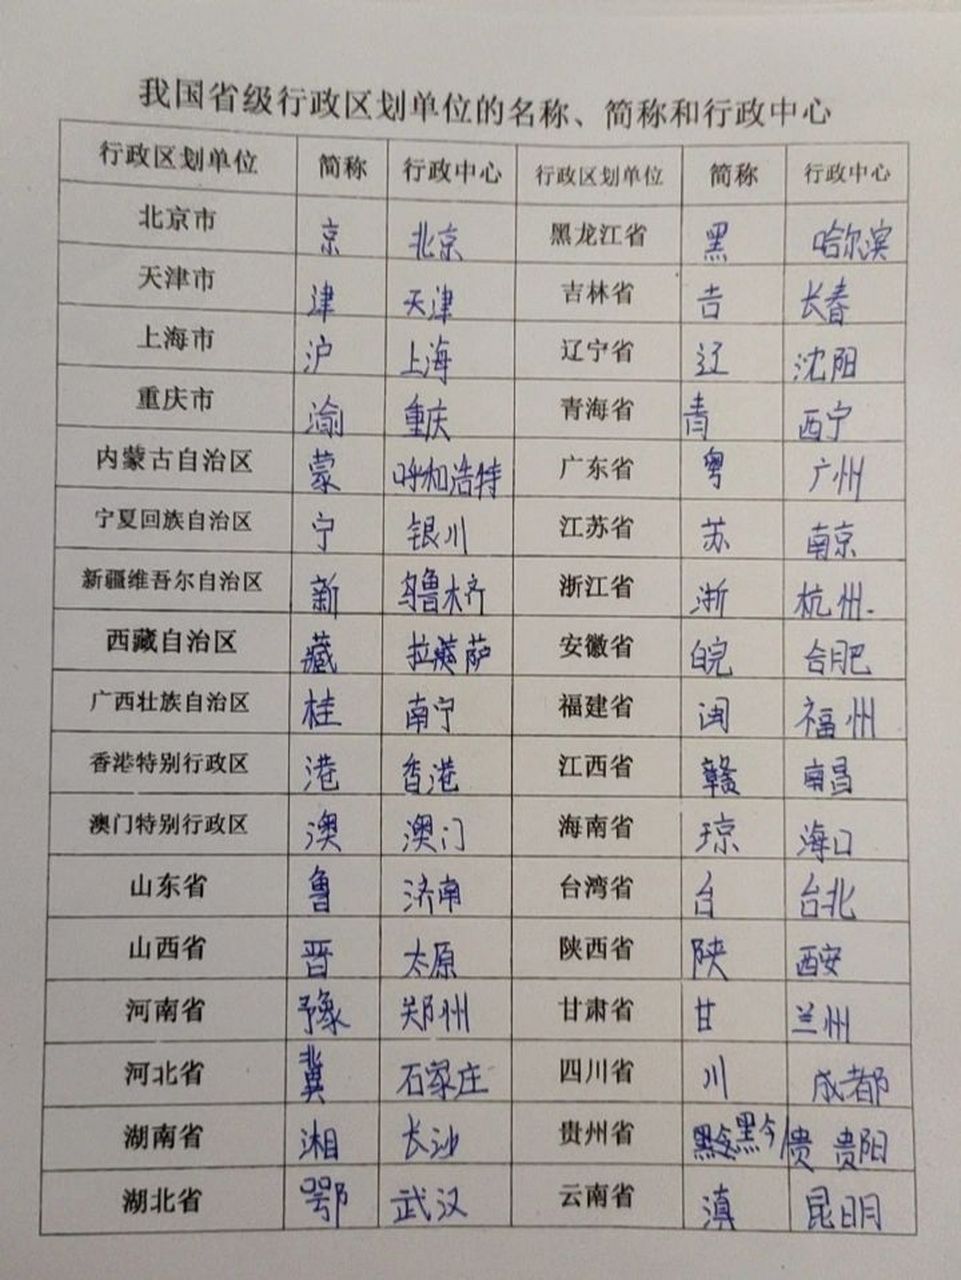 我国省级行政区划单位的名称、简称和行政中心
行政区划单位 简称 行政中心 行政区划单位 简称 行政中心
北京市 京 北京 黑龙江省 黑 哈尔滨
天津市 津 天津 吉林省 吉 长春
上海市 沪 上海 辽宁省 辽 沈阳
重庆市 渝 重庆 青海省 青 西宁
内蒙古自治区 蒙 呼和浩特 广东省 粤 广州
宁夏回族自治区 宁 银川 江苏省 苏 南京
新疆维吾尔自治区 新 乌鲁木齐 浙江省 浙 杭州.
西藏自治区 藏 拉萨 安徽省 皖 合肥
广西壮族自治区 桂 南宁 福建省 闽 福州
香港特别行政区 港 香港 江西省 赣 南昌
澳门特别行政区 澳 澳门 海南省 琼 海口
山东省 鲁 济南 台湾省 台 台北
山西省 晋 太原 陕西省 陕 西安
河南省 豫 郑州 甘肃省 甘 兰州
河北省 冀 石家庄 四川省 川 成都
湖南省 湘 长沙 贵州省 黔/贵 贵阳
湖北省 鄂 武汉 云南省 滇 昆明